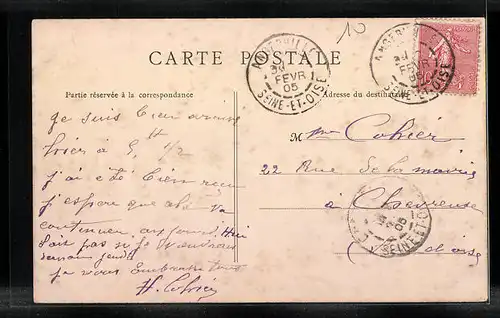 10
CARTE POSTALE
ANGERVILLE
FEVR
05
SEINE-ET-OISE
ANGERVILLE
FEVR
05
SEINE-ET-OISE
Partie réservée à la correspondance
Adresse du destinataire
je suis bien arrivé
hier à 5 H 1/2
j'ai été bien reçu
j'espère que
continuer aujourd'hui
sais pas si je
jeudi
je vous embrasse tous
H. Cohier
M me Cohier
22 Rue de la mairie
à Chevreuse
05
SEINE-ET-O
d'oise